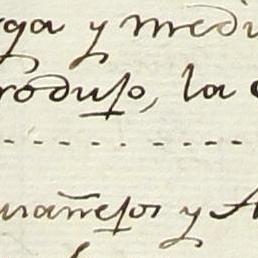 ga y medi
rodujo, la
urañejos y A